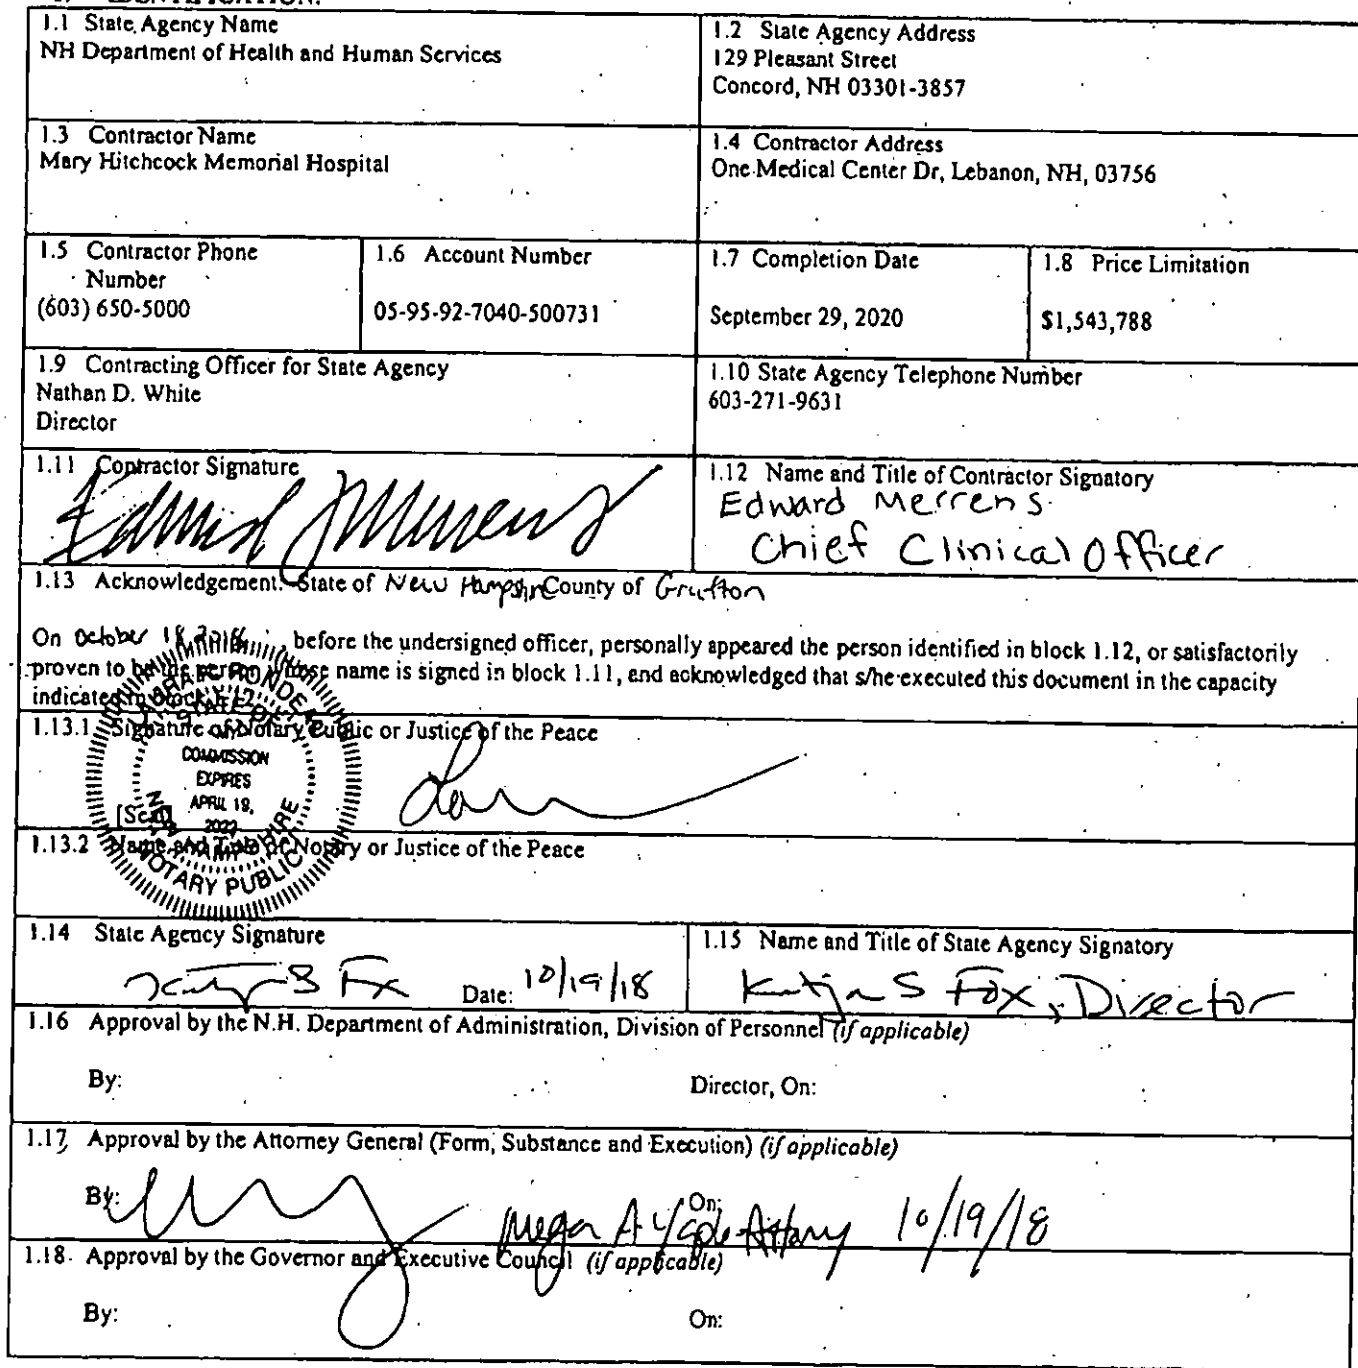 1.1 State Agency Name
NH Department of Health and Human Services
1.2 State Agency Address
129 Pleasant Street
Concord, NH 03301-3857
1.3 Contractor Name
Mary Hitchcock Memorial Hospital
1.4 Contractor Address
One Medical Center Dr, Lebanon, NH, 03756
1.5 Contractor Phone
Number
(603) 650-5000
1.6 Account Number
05-95-92-7040-500731
1.7 Completion Date
September 29, 2020
1.8 Price Limitation
$1,543,788
1.9 Contracting Officer for State Agency
Nathan D. White
Director
1.10 State Agency Telephone Number
603-271-9631
1.11 Contractor Signature
1.12 Name and Title of Contractor Signatory
Edward Merrens
Chief Clinical Officer
1.13 Acknowledgement: State of New Hampshire County of Grafton
On October 18, before the undersigned officer, personally appeared the person identified in block 1.12, or satisfactorily
proven to be the person whose name is signed in block 1.11, and acknowledged that s/he executed this document in the capacity
indicated in block 1.12.
1.13.1 Signature of Notary Public or Justice of the Peace
STATE OF
COMMISSION
EXPIRES
APRIL 19,
2022
NEW HAMPSHIRE
NOTARY PUBLIC
[Seal]
1.13.2 Name and Title of Notary or Justice of the Peace
1.14 State Agency Signature
Date: 10/19/18
1.15 Name and Title of State Agency Signatory
Katja S Fox, Director
1.16 Approval by the N.H. Department of Administration, Division of Personnel (if applicable)
By: Director, On:
1.17 Approval by the Attorney General (Form, Substance and Execution) (if applicable)
By: On: 10/19/18
1.18 Approval by the Governor and Executive Council (if applicable)
By: On: